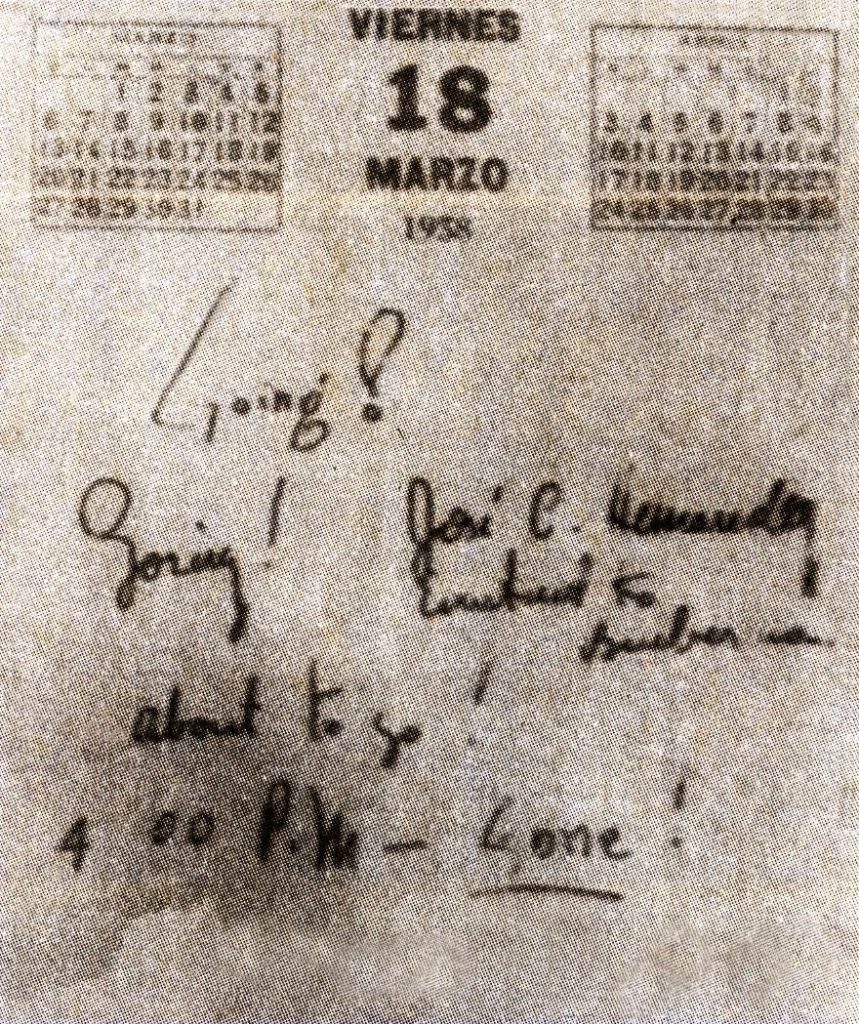 1 2 3 4 5
6 7 8 9 10 11 12
13 14 15 16 17 18 19
20 21 22 23 24 25 26
27 28 29 30 31
VIERNES
18
MARZO
1938
3 4 5 6 7 8 9
10 11 12 13 14 15 16
17 18 19 20 21 22 23
24 25 26 27 28 29 30
Going?
Going! José C. Hernandez
to
about to go!
4 00 P.M — Gone!